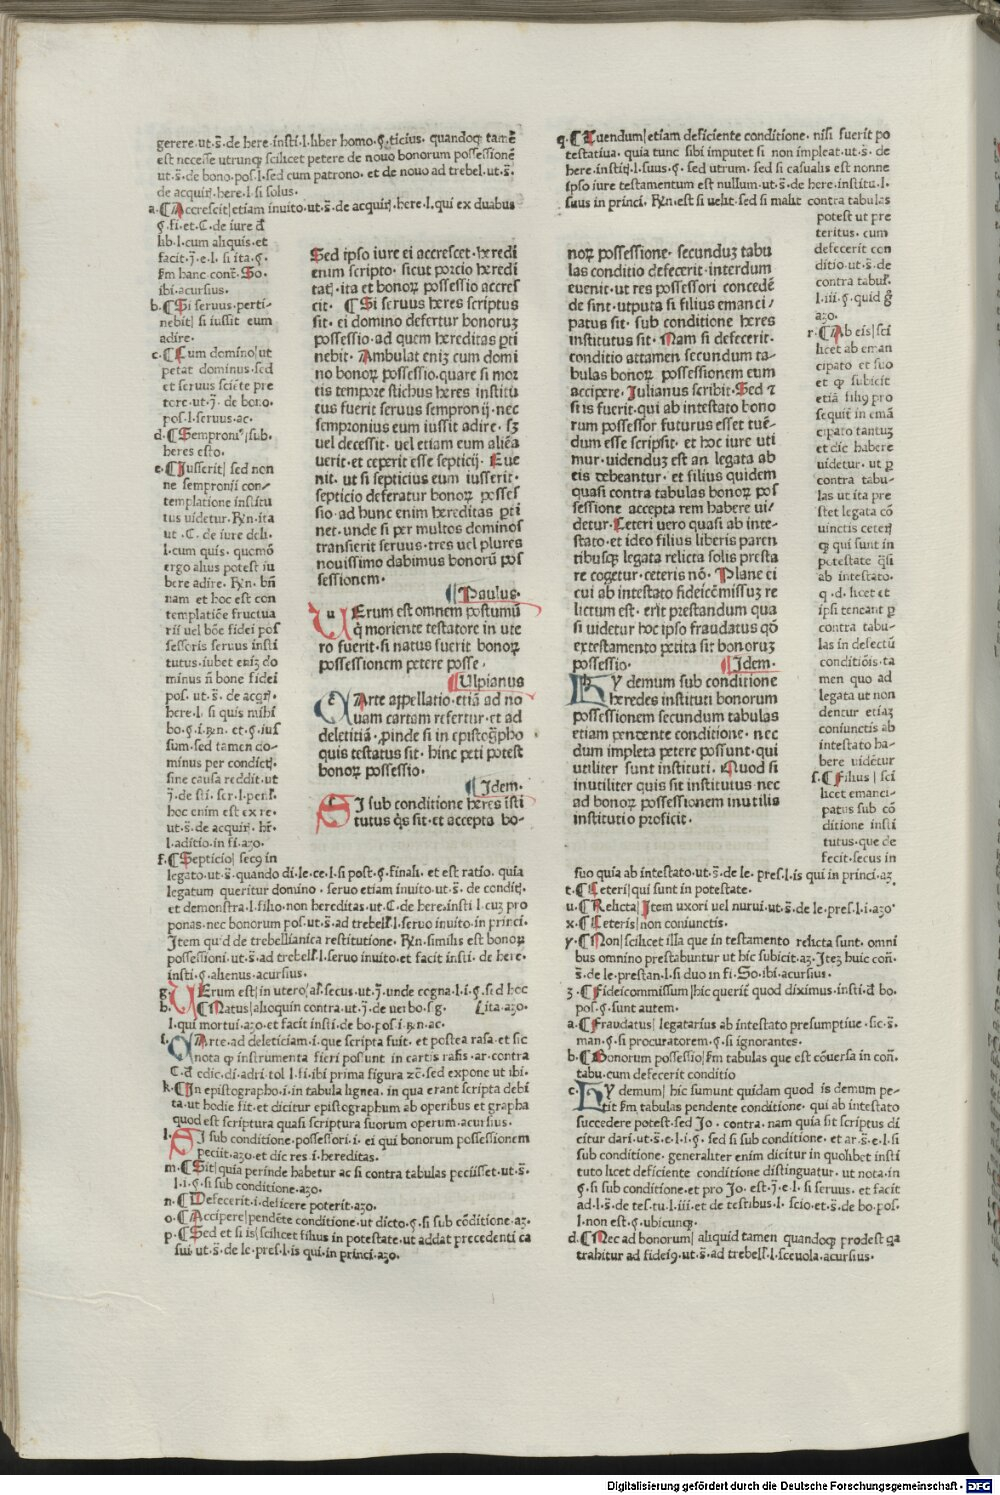 gerere·ut·s̄·de here·insti·l·liber homo·§·ticius· quandoq; tamē
est necesse utrunq; scilicet petere de nouo bonorum possessionē
ut·s̄·de bono·pos·l·sed cum patrono· et de nouo ad trebel·ut·s̄·
de acquir̨·here·l·si solus·
a·¶Accrescit|etiam inuito·ut·s̄·de acquir̨·here·l·qui ex duabus
§·fi·et·C·de iure đ
lib·l·cum aliquis·et
facit·j̄·e·l·si ita·§·
ẜm hanc cont̄·So·
ibi·acursius·
b·¶Si seruus·perti-
nebit| si iussit eum
adire·
c·¶Cum domino|ut
petat dominus·sed
et seruus sciēte pre
tore·ut·j̄·de bono·
pos·l·seruus·ac·
d·¶Sempronꝰ|sub·
heres esto·
e·¶Iusserit| sed non
ne sempronii con-
templatione institu
tus uidetur·R̄n·ita
ut·C·de iure deli·
l·cum quis·quemō
ergo alius potest iu
bere adire·R̄n·bn̄
nam et hoc est con
templatiōe fructua
rii uel bōe fidei pos
sessoris seruus insti
tutus·iubet enīz do
minus n̄ bone fidei
pos·ut·s̄·de acqr̨·
here·l·si quis mihi
bo·§·i·R̄n·et·§·ius
sum·sed tamen do-
minus per condict̨·
sine causa reddit·ut
j̄·de sti·ser·l·pen̄l·
hoc enim est ex re·
ut·s̄·de acquir̨·hr̄·
l·aditio·in fi·azo·
f·¶Septicio| secꝰ in
legato·ut·s̄·quando di·le·ce·l·si post·§·finali·et est ratio·quia
legatum queritur domino·seruo etiam inuito·ut·s̄·de condit̨·
et demonstra·l·filio·non hereditas·ut·C·de here·insti·l·cuz pro
ponas·nec bonorum pos·ut·s̄·ad trebelł·l·seruo inuito·in princi·
Item quid de trebellianica restitutione·R̄n·similis est bonoꝝ
possessioni·ut·s̄·ad trebelł·l·seruo inuito·et facit insti·de here·
insti·§·alienus·acursius·
g· UErum est|in utero|al·secus·ut·j̄·unde cogna·l·i·§·sed hoc
h· ¶Natus|alioquin contra·ut·j̄·de uerbo·sig· Ⱡita·azo·
l·qui mortui·azo·et facit insti·de bo·pos·i·R̄n·ac·
i· CArte·ad deleticiam·i·que scripta fuit·et postea rasa·et sic
nota q̨ instrumenta fieri possunt in cartis rasis·ar·contra
C·đ edic·di·adri·tol·l·fi·ibi prima figura zc̄·sed expone ut ibi·
k·¶In epistographo·i·in tabula lignea·in qua erant scripta debi
ta·ut hodie fit·et dicitur epistographum ab operibus et grapha
quod est scriptura quasi scriptura suorum operum·acursius·
l· SI sub conditione·possessori·i·ei qui bonorum possessionem
peciit·azo·et dic res·i·hereditas·
m·¶Sit|quia perinde habetur ac si contra tabulas peciisset·ut·s̄·
l·i·§·si sub conditione·azo·
n·¶Defecerit·i·deficere poterit·azo·
o·¶Accipere|pendēte conditione·ut dicto·§·si sub cōditione·az·
p·¶Sed et si is|scilicet filius in potestate·ut addat precedenti ca
sui·ut·s̄·de le·pres·l·is qui·in princi·azo·
Sed ipso iure ei accrescet·heredi
enim scripto·sicut porcio heredi
tat̨·ita et bonoꝝ possessio accres
cit· ¶Si seruus heres scriptus
sit·ei domino defertur bonoruz
possessio·ad quem hereditas ꝑti
nebit·Ambulat eniz cum domi
no bonoꝝ possessio·quare si mor
tis tempore stichus heres institu
tus fuerit seruus sempronij·nec
sempronius eum iussit adire·sz
uel decessit·uel etiam eum aliēa
uerit·et ceperit esse septicij·Eue
nit·ut si septicius eum iusserit·
septicio deferatur bonoꝝ posses
sio·ad hunc enim hereditas ꝑti
net·unde si per multos dominos
transierit seruus·tres uel plures
nouissimo dabimus bonorū pos
sessionem·
¶Paulus·
u UErum est omnem postumū
q̄ moriente testatore in ute
ro fuerit·si natus fuerit bonoꝝ
possessionem petere posse·
¶Ulpianus
c CArte appellatio·etiā ad no
uam cartam refertur·et ad
deletitiā·ꝓinde si in epistog̃pho
quis testatus sit·hinc peti potest
bonoꝝ possessio·
¶Idem·
s SI sub conditione heres isti
tutus q̇s sit·et accepta bo-
q·¶Tuendum|etiam deficiente conditione·nisi fuerit po
testatiua·quia tunc sibi imputet si non impleat·ut·s̄·de
here·instit̨·l·suus·§·sed utrum·sed si casualis est nonne
ipso iure testamentum est nullum·ut·s̄·de here·institu·l·
suus in princi·R̄n·est si uelit·sed si malit contra tabulas
potest ut pre
teritus·cum
defecerit con
ditio·ut·s̄·de
contra tabuł·
l·iii·§·quid g̊
azo·
r·¶Ab eis|sci
licet ab eman
cipato et suo
et q̨ subicit
etiā filiꝰ pro
sequit̄ in emā
cipato tantuz
et dic habere
uidetur·ut ꝑ
contra tabu-
las ut ita pre
stet legata cō
iunctis ceter̨
q̨ qui sunt in
potestate q̄si
ab intestato·
q·d·licet et
ipsi teneant̄ ꝑ
contra tabu-
las in defectū
conditiōis·ta
men quo ad
legata ut non
dentur etiaz
coniunctis ab
intestato ha-
bere uidētur
s·¶Filius| sci
licet emanci-
patus sub cō
ditione insti
tutus·que de
fecit·secus in
suo quia ab intestato·ut·s̄·de le·pres·l·is qui in princi·az·
t·¶Ceteri|qui sunt in potestate·
u·¶Relicta|Item uxori uel nurui·ut·s̄·de le·pres·l·i·azo·
x·¶Ceteris|non coniunctis·
y·¶Non|scilicet illa que in testamento relicta sunt·omni
bus omnino prestabuntur ut hic subicit·az·Itez huic con̄·
s̄·de le·prestan·l·si duo in fi·So·ibi·acursius·
z·¶Fideicommissum|hic querit̄ quod diximus·insti·đ bo·
pos·§·sunt autem·
a·¶Fraudatus| legatarius ab intestato presumptiue·sic·s̄·
man·§·si procuratorem·§·si ignorantes·
b·¶Bonorum possessio|ẜm tabulas que est cōuersa in con̄·
tabu·cum defecerit conditio
c· HY demum| hic sumunt quidam quod is demum pe-
tit ẜm tabulas pendente conditione·qui ab intestato
succedere potest·sed Jo·contra·nam quia sit scriptus di
citur dari·ut·s̄·e·l·i·§·sed si sub conditione·et ar·s̄·e·l·si
sub conditione·generaliter enim dicitur in quolibet insti
tuto licet deficiente conditione distinguatur·ut nota·in
§·si sub conditione·et pro Jo·est·j̄·e·l·si seruus·et facit
ad·l·s̄·de tes·tu·l·iii·et de testibus·l·scio·et·s̄·de bo·pos·
l·non est·§·ubicunq;·
d·¶Nec ad bonorum| aliquid tamen quandoq; prodest qa
trahitur ad fideiꝰ·ut·s̄·ad trebelł·l·sceuola·acursius·
noꝝ possessione·secunduz tabu
las conditio defecerit·interdum
euenit·ut res possessori concedē
de sint·utputa si filius emanci/
patus sit·sub conditione heres
institutus sit·Nam si defecerit·
conditio attamen secundum ta-
bulas bonoꝝ possessionem eum
accipere·Julianus scribit·Sed ⁊
si is fuerit·qui ab intestato bono
rum possessor futurus esset tuē-
dum esse scripsit·et hoc iure uti
mur·uidenduz est an legata ab
eis debeantur·et filius quidem
quasi contra tabulas bonoꝝ pos
sessione accepta rem habere ui/
detur·Ceteri uero quasi ab inte-
stato·et ideo filius liberis paren
tibusq; legata relicta solis presta
re cogetur·ceteris nō·Plane ei
cui ab intestato fideicōmissuz re
lictum est·erit prestandum qua
si uidetur hoc ipso fraudatus qō
extestamento petita sit bonoruz
possessio· ¶Idem·
h HY demum sub conditione
heredes instituti bonorum
possessionem secundum tabulas
etiam pendente conditione·nec
dum impleta petere possunt·qui
utiliter sunt instituti·Quod si
inutiliter quis sit institutus·nec
ad bonoꝝ possessionem inutilis
institutio proficit·
Digitalisierung gefördert durch die Deutsche Forschungsgemeinschaft - DFG